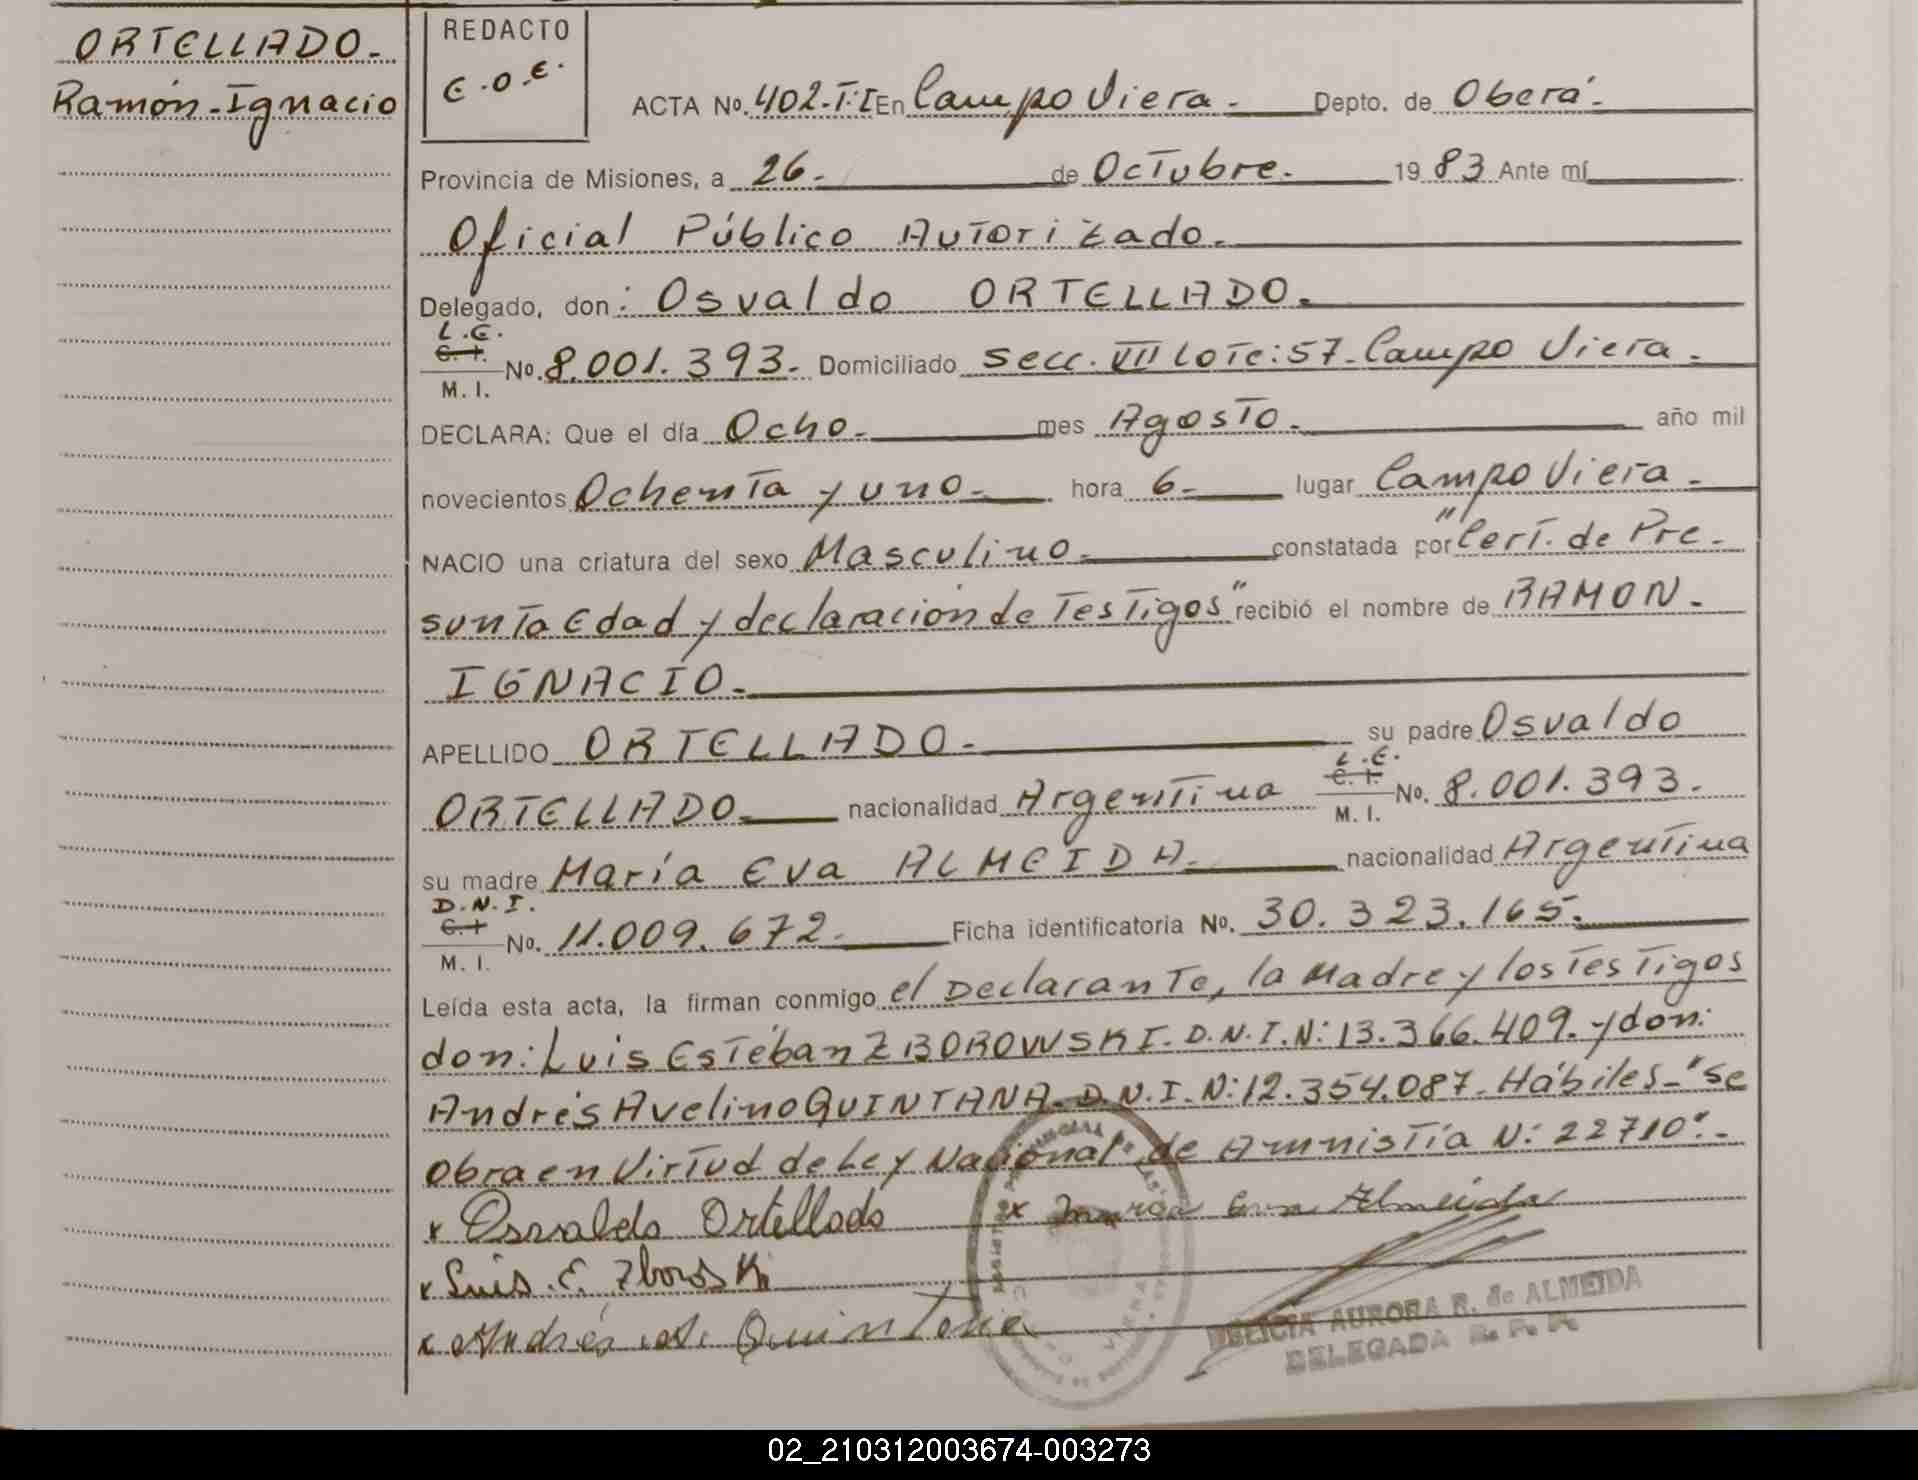 ORTELLADO.
Ramón-Ignacio
REDACTO
E.O.E.
ACTA No. 402.T:I En Campo Viera. Depto. de Oberá.
Provincia de Misiones, a 26. de Octubre. 1983 Ante mí
Oficial Público Autorizado.
Delegado, don: Osvaldo ORTELLADO.
L.E.
C. I.
M. I.
No. 8.001.393. Domiciliado Secc. VII Lote:57-Campo Viera.
DECLARA: Que el día Ocho. mes Agosto. año mil
novecientos Ochenta y uno. hora 6. lugar Campo Viera.
NACIO una criatura del sexo Masculino. constatada por "Cert. de Pre-
sunta Edad y declaración de Testigos" recibió el nombre de RAMON.
IGNACIO.
APELLIDO ORTELLADO. su padre Osvaldo
ORTELLADO. nacionalidad Argentina L.E. C. I. M. I. No. 8.001.393.
su madre María Eva ALMEIDA. nacionalidad Argentina
D.N.I.
C. I
M. I.
No. 11.009.672. Ficha identificatoria No. 30.323.165.
Leída esta acta, la firman conmigo el Declarante, la Madre y los Testigos
don: Luis Estéban ZBOROWSKI. D.N.I.N: 13.366.409. y don:
Andrés Avelino QUINTANA. D.N.I.N: 12.354.087. Hábiles-"se
Obra en Virtud de Ley Nacional" de Amnistía N: 22710".
x Osvaldo Ortellado x María Eva Almeida
x Luis. E. Zboroski
x Andrés A. Quintana
DELICIA AURORA R. de ALMEIDA
DELEGADA R. P. P.
02_210312003674-003273